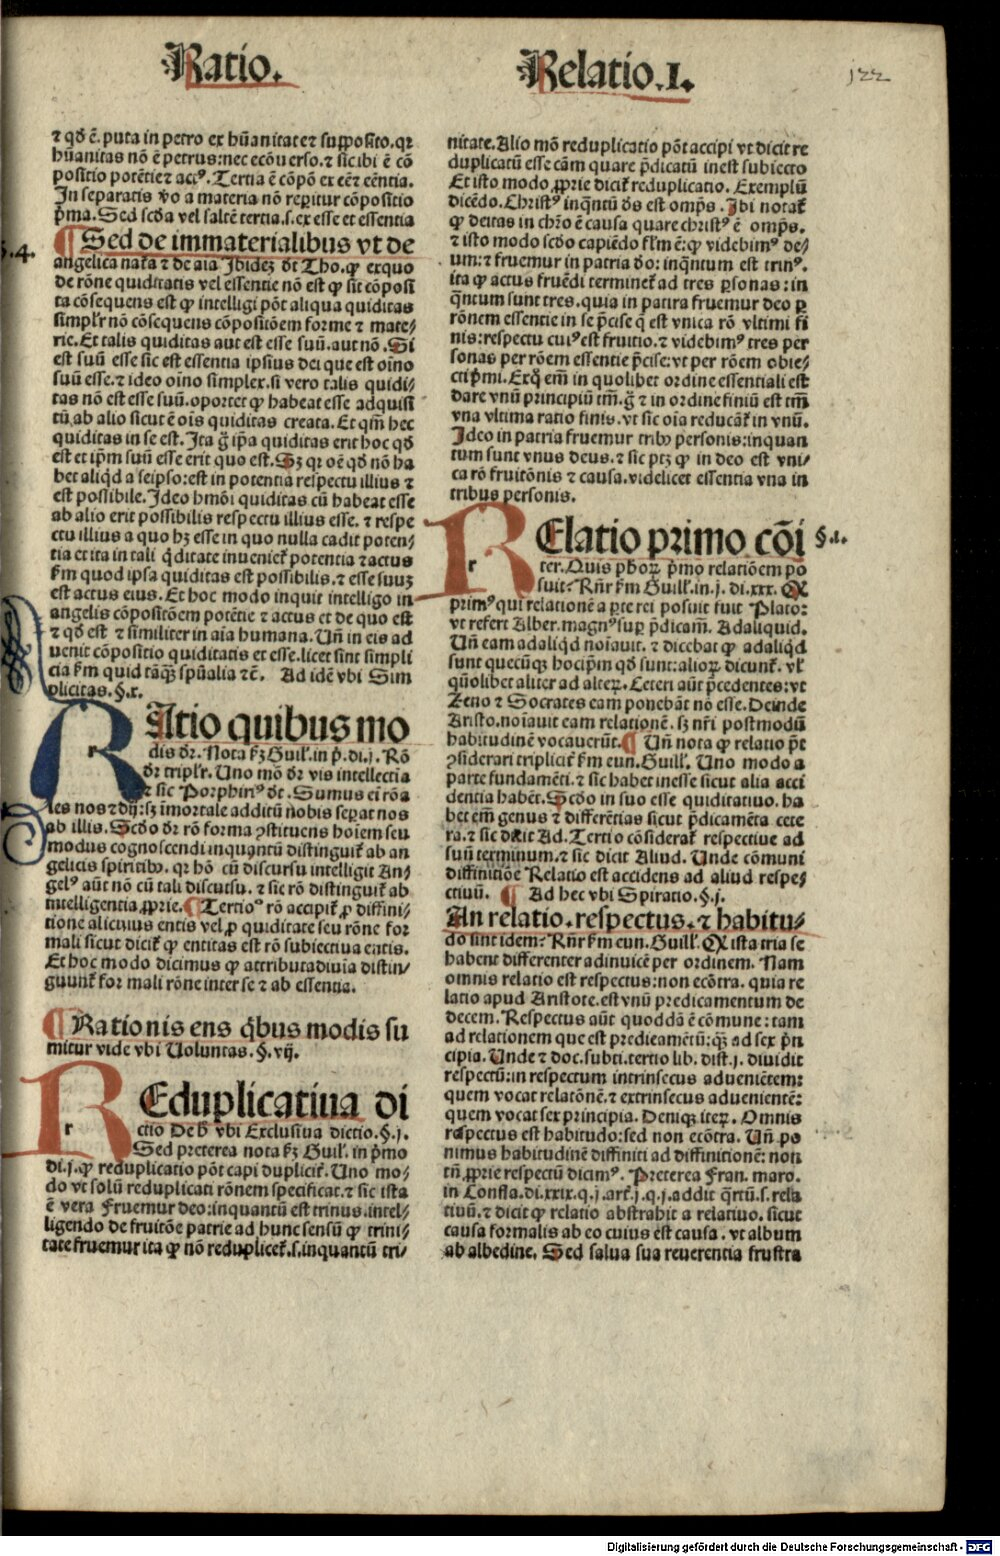 Ratio.
Relatio.I.
122
⁊ qđ ē. puta in petro ex hūanitate⁊ supposito. qꝛ
hūanitas nō ē petrus: nec ecōuerso. ⁊ sic ibi ē cō
positio potētie⁊ actꝰ. Tertia ē cōpō ex eē⁊ eēntia.
In separatis v̄o a materia nō reperitur cōpositio
p̄ma. Sed scđa vel saltē tertia. s. ex esse et essentia
§.4.
¶ Sed de immaterialibus vt de
angelica nat̄a ⁊ de aīa Ibidē dt Tho. ꝙ exquo
de rōne quiditatis vel essentie nō est ꝙ sit cōposi
ta cōsequens est ꝙ intelligi pōt aliqua quiditas
simplr̄ nō cōsequens cōpositōem forme ⁊ mate⸗
rie. Et talis quiditas aut est esse suū. aut nō. Si
est suū esse sic est essentia ipsius dei que est oīno
suū esse. ⁊ ideo oīno simplex. si vero talis quidi⸗
tas nō est esse suū. oportet ꝙ habeat esse adquisi
tū ab alio sicut ē oīs quiditas creata. Et qm̄ hec
quiditas in se est. Ita g̊ ip̄a quiditas erit hoc qđ
est et ip̄m suū esse erit quo est. Sꝫ qꝛ oē qđ nō ha
bet aliqd a seipso: est in potentia respectu illius ⁊
est possibile. Ideo hmōi quiditas cū habeat esse
ab alio erit possibilis respectu illius esse. ⁊ respe
ctu illius a quo hꝫ esse in quo nulla cadit poten⸗
tia et ita in tali qditate inueniet̄ potentia ⁊actus
ẜm quod ipsa quiditas est possibilis. ⁊ esse suuꝫ
est actus eius. Et hoc modo inquit intelligo in
angelis cōpositōem potētie ⁊ actus et de quo est
⁊ qđ est ⁊ similiter in aīa humana. Un̄ in eis ad
uenit cōpositio quiditatis et esse. licet sint simpli
cia ẜm quid tāqꝫ spūalia ⁊c̄. Ad idē vbi Sim
plicitas. §.x.
RAtio quibus mo
dis dr̄. Nota ẜꝫ Guil. in p̄. di. j. Rō
dr̄ triplr̄. Uno mō dr̄ vis intellectia
⁊ sic Porphirꝰ dt. Sumus eī rōa
les nos ⁊ dij: sꝫ īmortale additū nobis sepat nos
ab illis. Scđo dr̄ rō forma ꝯstituens hoīem seu
modus cognoscendi inquantū distinguit̄ ab an
gelicis spiritibꝰ. qꝛ hō cū discursu intelligit An⸗
gelꝰ aūt nō cū tali discursu. ⁊ sic rō distinguit̄ ab
intelligentia ꝓprie. ¶ Tertioº rō accipit̄ ꝓ diffini⸗
tione alicuius entis vel ꝓ quiditate seu rōne for
mali sicut dicit̄ ꝙ entitas est rō subiectiua entis.
Et hoc modo dicimus ꝙ attributa diuīa distin⸗
guunt̄ formali rōne inter se ⁊ ab essentia.
¶ Rationis ens q̄bus modis su
mitur vide vbi Uoluntas. §. vij.
REduplicatiua di
ctio De ħ vbi Exclusiua dictio. §. j.
Sed preterea nota ẜꝫ Guil. in p̄mo
di. j. ꝙ reduplicatio pōt capi duplicit̄. Uno mo⸗
do vt solū reduplicati rōnem specificat. ⁊ sic ista
ē vera Fruemur deo: inquantū est trinus. intel⸗
ligendo de fruitōe patrie ad hunc sensū ꝙ trini⸗
tate fruemur ita ꝙ nō reduplicet̄. s. inquantū tri⸗
nitate. Alio mō reduplicatio pōt accipi vt dicit re
duplicatū esse cām quare p̄dicatū inest subiecto
Et isto modo ꝓprie dicit̄ reduplicatio. Exemplū
dicēdo. Christꝰ inq̄ntū ds est omps. Ibi notat̄
ꝙ deitas in chrō ē causa quare christꝰ ē omps.
⁊ isto modo scđo capiēdo fl̄m ē: ꝙ videbimꝰ de⸗
um: ⁊ fruemur in patria deo: inq̄ntum est trinꝰ.
ita ꝙ actus fruēdi terminet̄ ad tres ꝑsonas: in
q̄ntum sunt tres. quia in patria fruemur deo ꝑ
rōnem essentie in se p̄cise q̄ est vnica rō vltimi fi
nis: respectu cuiꝰ est fruitio. ⁊ videbimꝰ tres per
sonas per rōem essentie p̄cise: vt per rōem obie⸗
cti p̄mi. Exq̊ em̄ in quolibet ordine essentiali est
dare vnū principiū tm̄. g̊ ⁊ in ordine finiū est tm̄
vna vltima ratio finis. vt sic oīa reducāt̄ in vnū.
Ideo in patria fruemur tribꝰ personis: inquan
tum sunt vnus deus. ⁊ sic ptꝫ ꝙ in deo est vni⸗
ca rō fruitōnis ⁊ causa. videlicet essentia vna in
tribus personis.
RElatio primo cōi
§.1.
ter. Quis phoꝝ p̄mo relatiōem po
suit? Rn̄r ẜm Guill. in. j. di. xxx. Q
primꝰ qui relationē a ꝑte rei posuit fuit Plato:
vt refert Alber. magnꝰ suꝑ p̄dicam̄. Adaliquid.
Un̄ eam adaliqd noīauit. ⁊ dicebat ꝙ adaliqd
sunt quecūqꝫ hoc ip̄m qđ sunt: alioꝝ dicunt̄. vl̓
quōlibet aliter ad alteꝝ. Ceteri aūt p̄cedentes: vt
Zeno ⁊ Socrates eam ponebāt nō esse. Deinde
Aristo. noīauit eam relationē. sꝫ nr̄i postmodū
habitudinē vocauerūt. ¶ Un̄ nota ꝙ relatio pōt
ꝯsiderari triplicit̄ ẜm eun. Guill. Uno modo a
parte fundamēti. ⁊ sic habet inesse sicut alia acci
dentia habēt. Scđo in suo esse quiditatiuo. ha
bet em̄ genus ⁊ differētias sicut p̄dicamēta cete
ra. ⁊ sic dicit Ad. Tertio cōsiderat̄ respectiue ad
suū terminum. ⁊ sic dicit Aliud. Unde cōmuni
diffinitiōe Relatio est accidens ad aliud respe⸗
ctiuū. ¶ Ad hec vbi Spiratio. §. j.
An relatio. respectus. ⁊ habitu⸗
do sint idem? Rn̄r ẜm eun. Guill. Q ista tria se
habent differenter adinuicē per ordinem. Nam
omnis relatio est respectus: non ecōtra. quia re
latio apud Aristote. est vnū predicamentum de
decem. Respectus aūt quoddā ē cōmune: tam
ad relationem que est predicamētū: qꝫ ad sex p̄n
cipia. Unde ⁊ doc. subti. tertio lib. dist. j. diuidit
respectū: in respectum intrinsecus adueniētem:
quem vocat relatōnē. ⁊ extrinsecus aduenientē:
quem vocat sex principia. Deniqꝫ iteꝝ. Omnis
respectus est habitudo: sed non ecōtra. Un̄ po
nimus habitudinē diffiniti ad diffinitionē: non
tn̄ ꝓprie respectū dicimꝰ. Preterea Fran. maro.
in Confla. di. xxix. q. j. art̄. j. q. j. addit q̄rtū. s. rela
tiuū. ⁊ dicit ꝙ relatio abstrahit a relatiuo. sicut
causa formalis ab eo cuius est causa. vt album
ab albedine. Sed salua sua reuerentia frustra
Digitalisierung gefördert durch die Deutsche Forschungsgemeinschaft - DFG